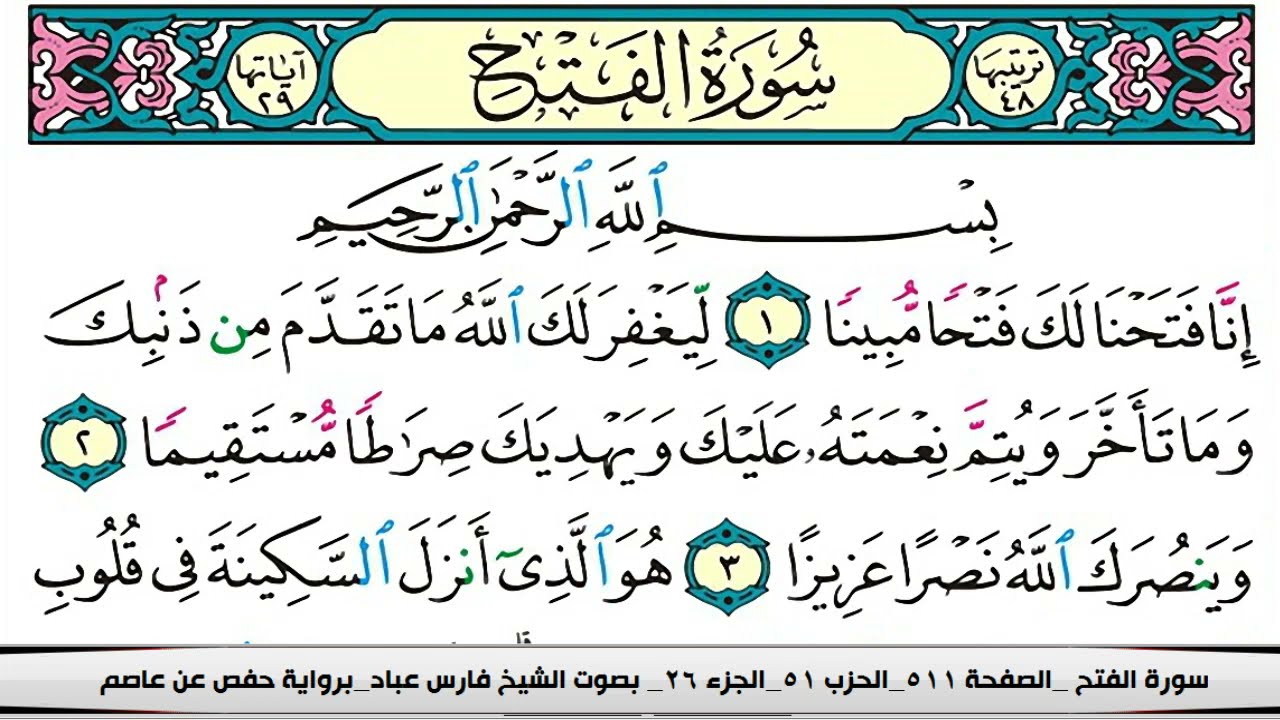 ترتيبها ٤٨ سُورَةُ الفَتْحِ آياتها ٢٩
بِسْمِ ٱللَّهِ ٱلرَّحْمَٰنِ ٱلرَّحِيمِ
إِنَّا فَتَحْنَا لَكَ فَتْحًا مُّبِينًا ١ لِّيَغْفِرَ لَكَ ٱللَّهُ مَا تَقَدَّمَ مِن ذَنۢبِكَ
وَمَا تَأَخَّرَ وَيُتِمَّ نِعْمَتَهُۥ عَلَيْكَ وَيَهْدِيَكَ صِرَٰطًا مُّسْتَقِيمًا ٢
وَيَنصُرَكَ ٱللَّهُ نَصْرًا عَزِيزًا ٣ هُوَ ٱلَّذِىٓ أَنزَلَ ٱلسَّكِينَةَ فِى قُلُوبِ
سورة الفتح _الصفحة ٥١١_الحزب ٥١_الجزء ٢٦_ بصوت الشيخ فارس عباد_برواية حفص عن عاصم